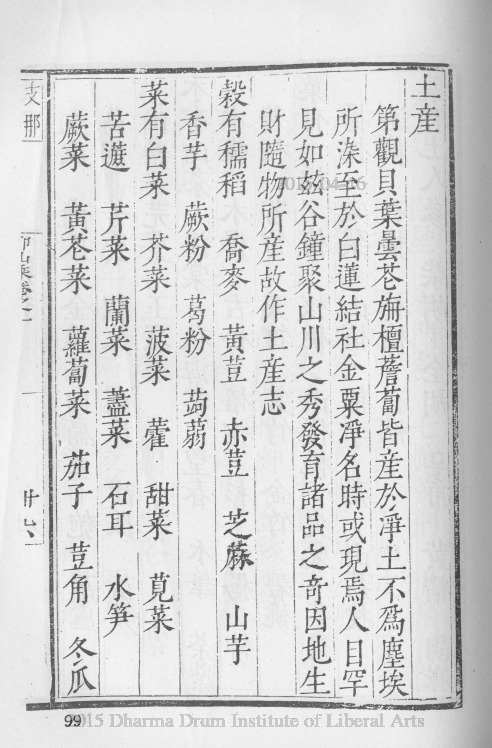 土産
第觀貝葉曇芲旃檀薝蔔皆産於淨土不爲塵埃
所染至於白蓮結社金粟淨名時或現焉人目罕
見如玆谷鐘聚山川之秀發育諸品之奇因地生
財隨物所産故作土産志
穀有穤稻 喬麥 黃荳 赤荳 芝蔴 山芋
香芋 蕨粉 葛粉 蒟蒻
菜有白菜 芥菜 菠菜 藿 甜菜 莧菜
苦蕒 芹菜 蘭菜 藎菜 石耳 水笋
蕨菜 黃芲菜 蘿蔔菜 茄子 荳角 冬瓜
支那
廿六
99
2015 Dharma Drum Institute of Liberal Arts